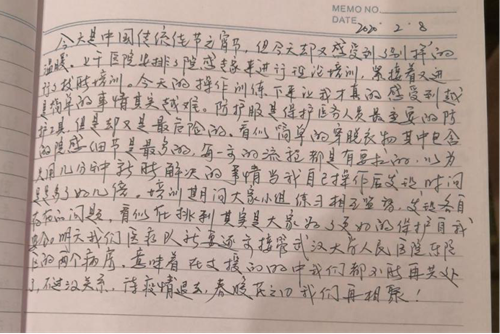 MEMO NO.
DATE 2020.2.8
今天是中国传统佳节元宵节,但今天却又感受到了别样的
温暖。上午医院安排了院感专家来进行理论培训,紧接着又进
行了技能培训。今天的操作训练下来让我才真的感受到越
是简单的事情其实越难。防护服是保护医务人员最重要的防
护工具,但是却又是最危险的。看似简单的穿脱衣物其中包含
的院感细节是最多的,每一步的流程都是有要求的。以为
只用几分钟就能解决的事情当我自己操作后发现时间
是多了好几倍。培训期间大家小组练习相互监督,发现各自
存在的问题,看似在挑刺其实是大家为了更好的保护自我
安全。明天我们医疗队就要逐步接管武汉大学人民医院东院
区的两个病房。意味着在支援的
不过没关系,待疫情退去,春暖花开之日我们再相聚!